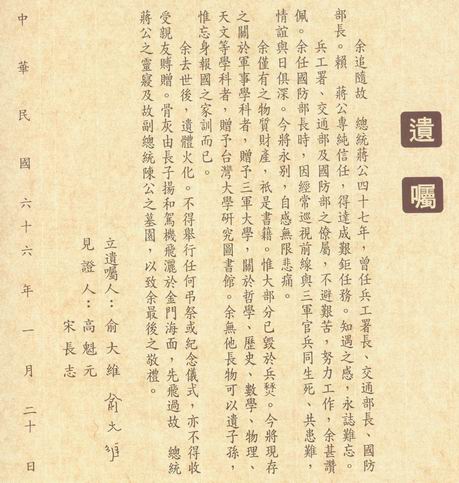 遺囑
余追隨故　總統蔣公四十七年，曾任兵工署長、交通部長、國防
部長。賴　蔣公專純信任，得達成艱鉅任務。知遇之感，永誌難忘。
兵工署、交通部及國防部之僚屬，不避艱苦，努力工作，余甚讚
佩。余任國防部長時，因經常巡視前線與三軍官兵同生死、共患難，
情誼與日俱深。今將永別，自感無限悲痛。
余僅有之物質財產，祇是書籍。惟大部分已毀於兵燹。今將現存
之關於軍事學科者，贈予三軍大學，關於哲學、歷史、數學、物理、
天文等學科者，贈予台灣大學研究圖書館。余無他長物可以遺子孫，
惟忘身報國之家訓而已。
余去世後，遺體火化。不得舉行任何弔祭或紀念儀式，亦不得收
受親友賻贈。骨灰由長子揚和駕機飛灑於金門海面，先飛過故　總統
蔣公之靈寢及故副總統陳公之墓園，以致余最後之敬禮。
立遺囑人：俞大維 俞大維
見證人：高魁元
宋長志
中華民國六十六年一月二十日